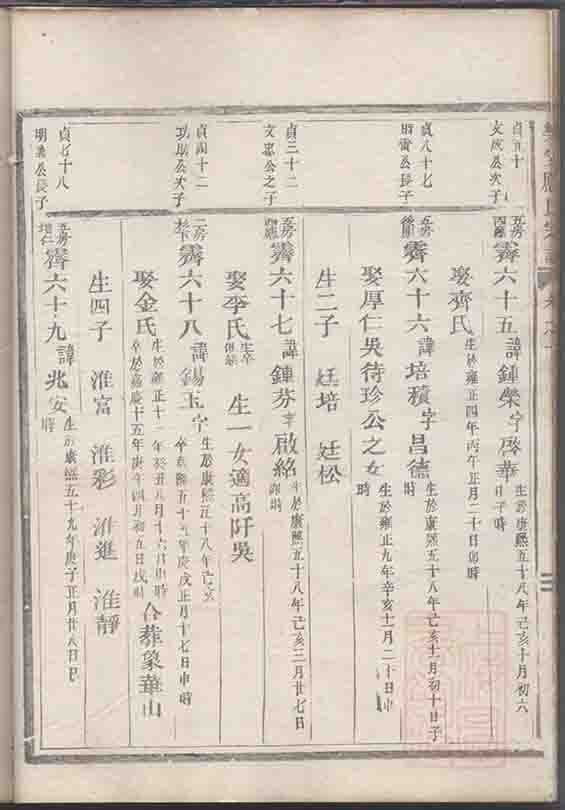 貞五十
文成公次子
五房
霽六十五諱鍾榮字啓華
生於康熙五十八年己亥十月初六
日子時
娶齊氏
生於雍正四年丙午正月二十日卯時
貞八十七
公長子
五房
霽六十六諱培積字昌德
生於康熙五十八年己亥十二月初十日子
時
娶厚仁吳待珍公之女
生於雍正九年辛亥十一月二十日申
時
生二子 廷培 廷松
貞三十二
文忠公之子
五房
霽六十七諱鍾芬字啟紹
生於康熙五十八年己亥三月廿七日
時
娶李氏
生卒
生一女適高阡吳
貞四十二
功公次子
二房
霽六十八諱錫玉字
生於康熙五十八年己亥
卒乾隆五十五年庚戌正月十七日申時
娶金氏
生於雍正十一年癸丑八月十六日申時
卒於嘉慶十五年庚午四月初五日戌時
合葬象華山
生四子 淮富 淮彩 淮進 淮靜
貞七十八
明公長子
五房
霽六十九諱兆安
生於康熙五十九年庚子正月廿八日巳
時